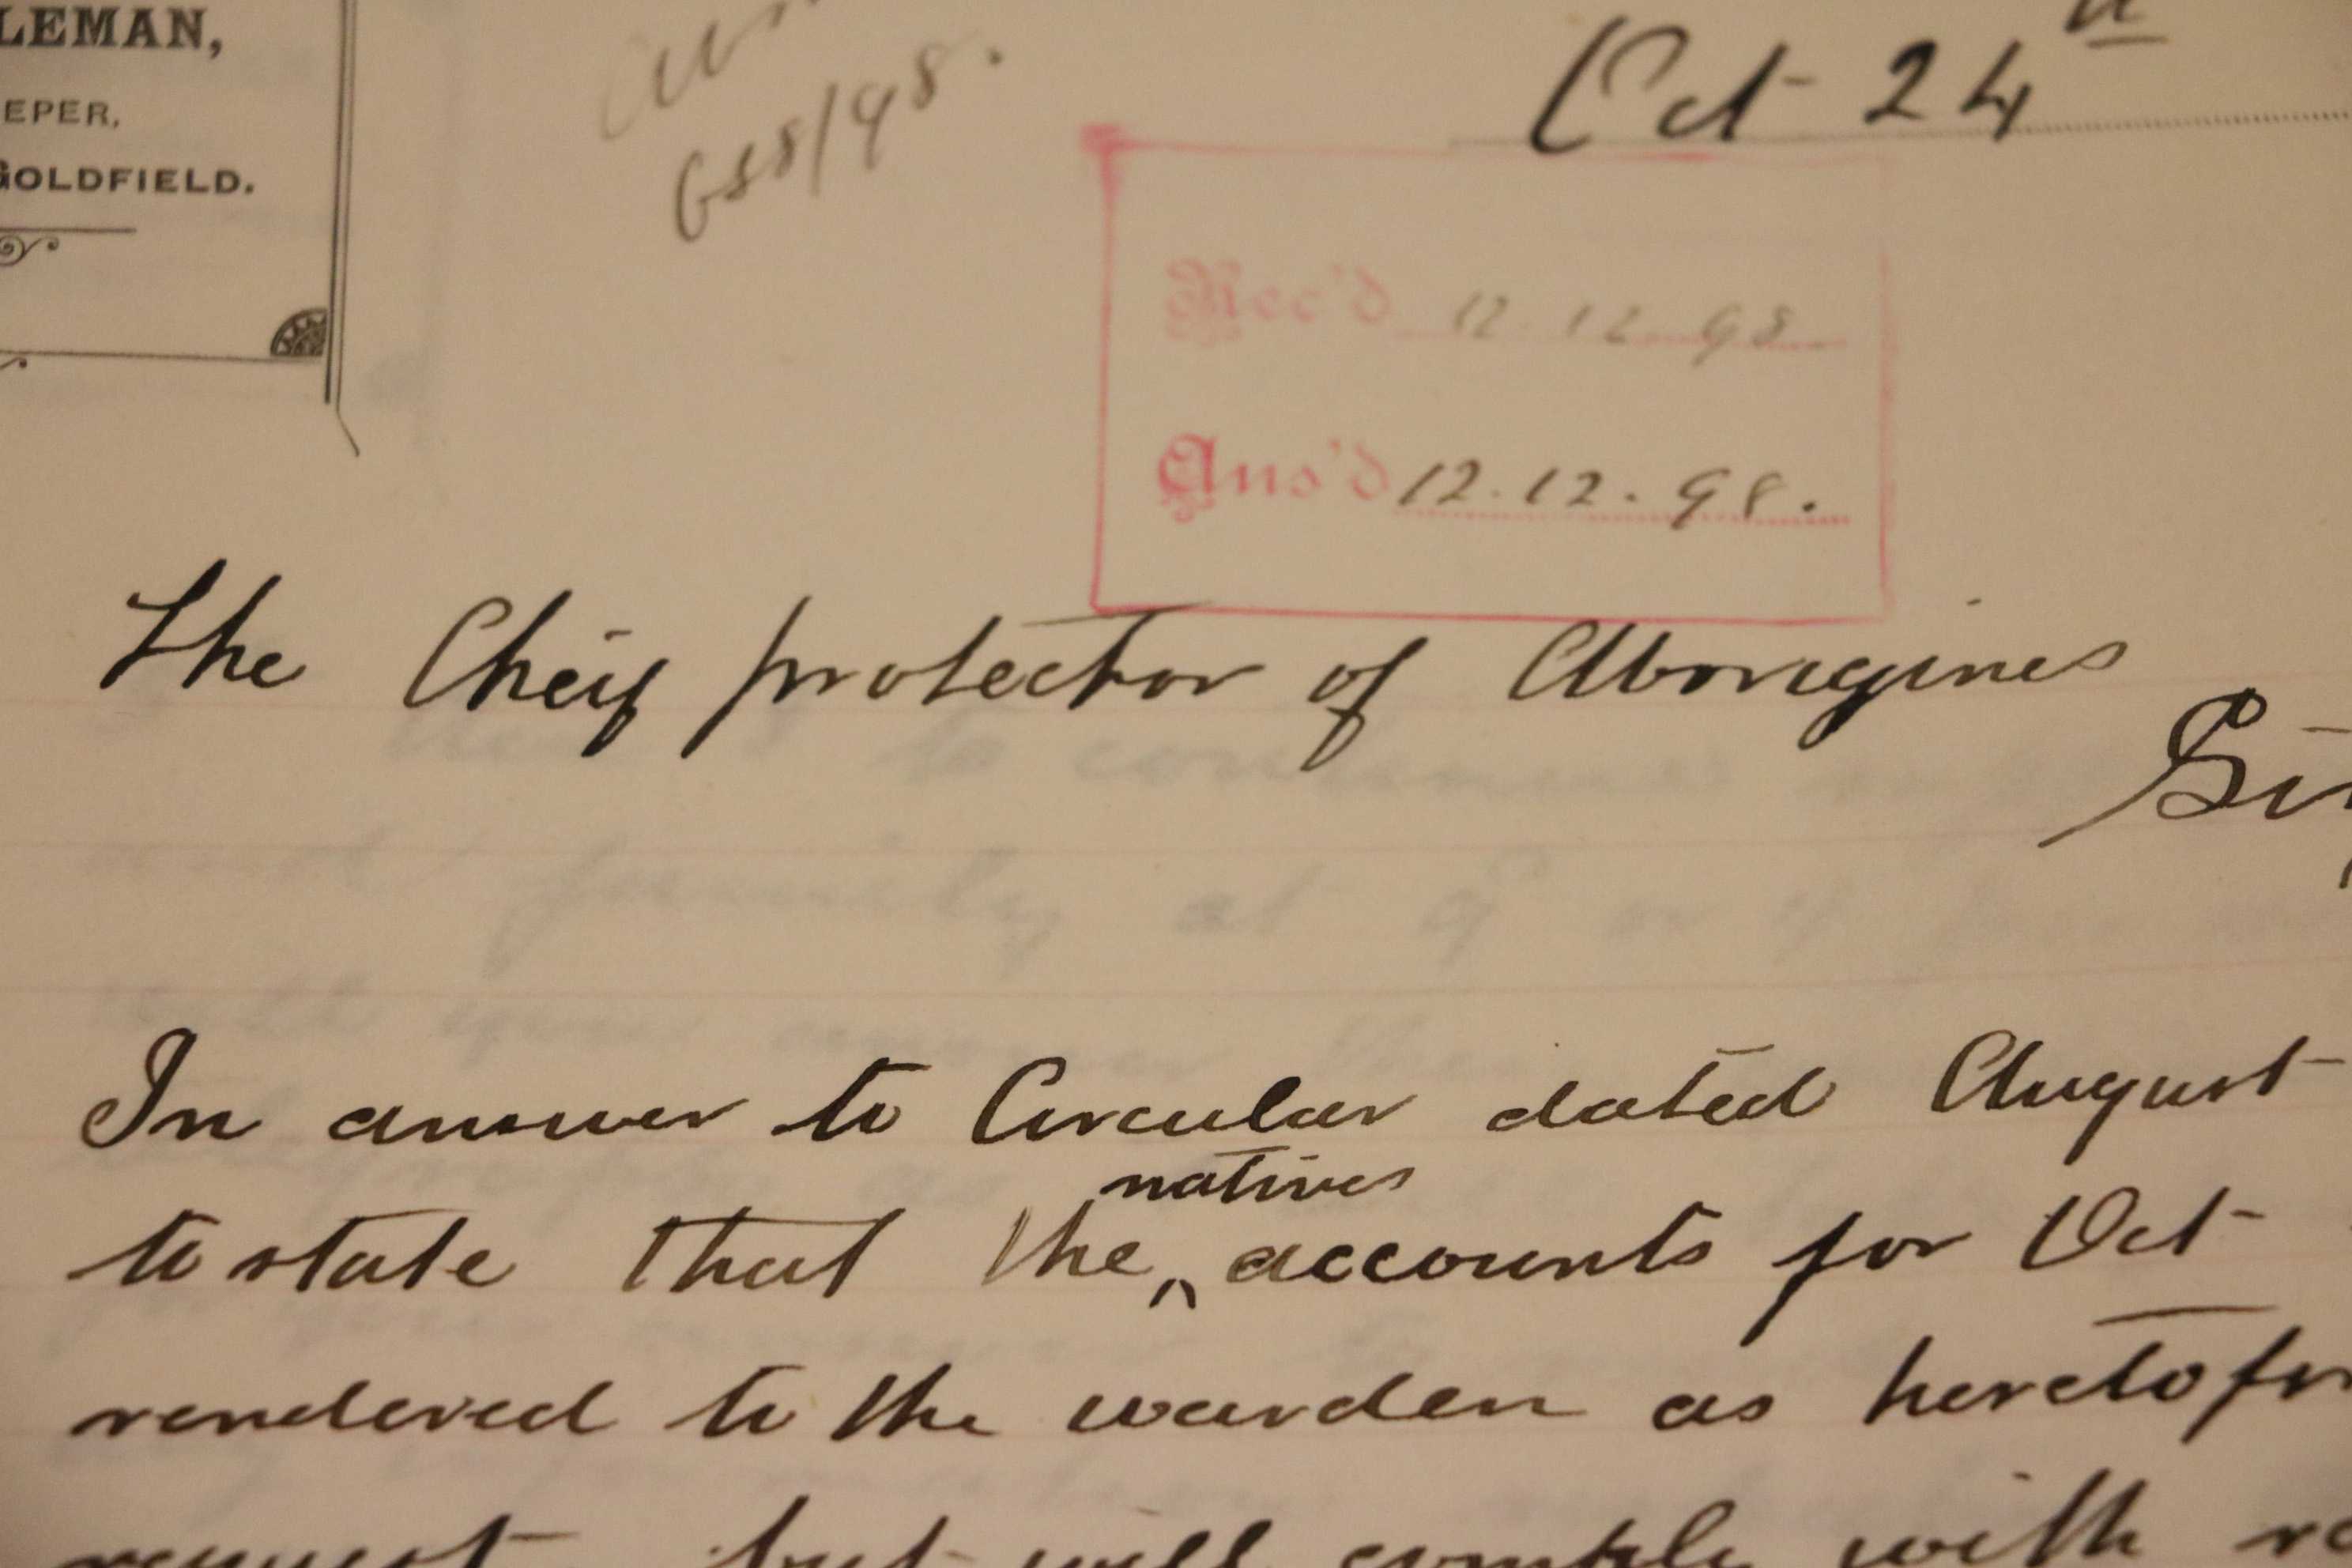 LEMAN,
EPER,
GOLDFIELD.
658/98.
Oct 24th
Rec'd 12.12.98
Ans'd 12.12.98.
The Cheif protector of Aborigines
Sir
In answer to Circular dated August
natives
to state that the ^ accounts for Oct
rendered to the warden as heretofor
request but will comply with re